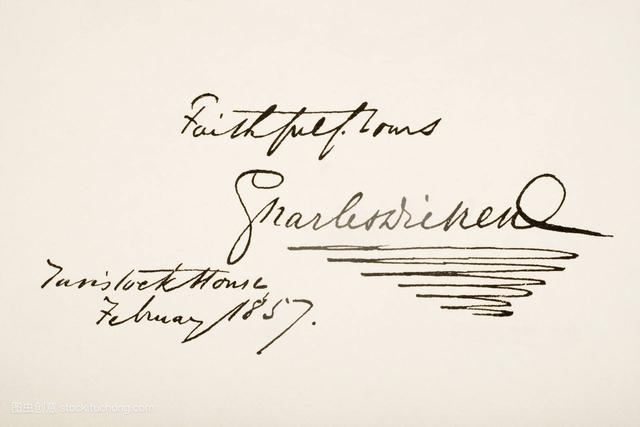 Faithfully Yours
Charles Dickens
Tavistock House
February 1857.
图虫创意 stocktuchong.com